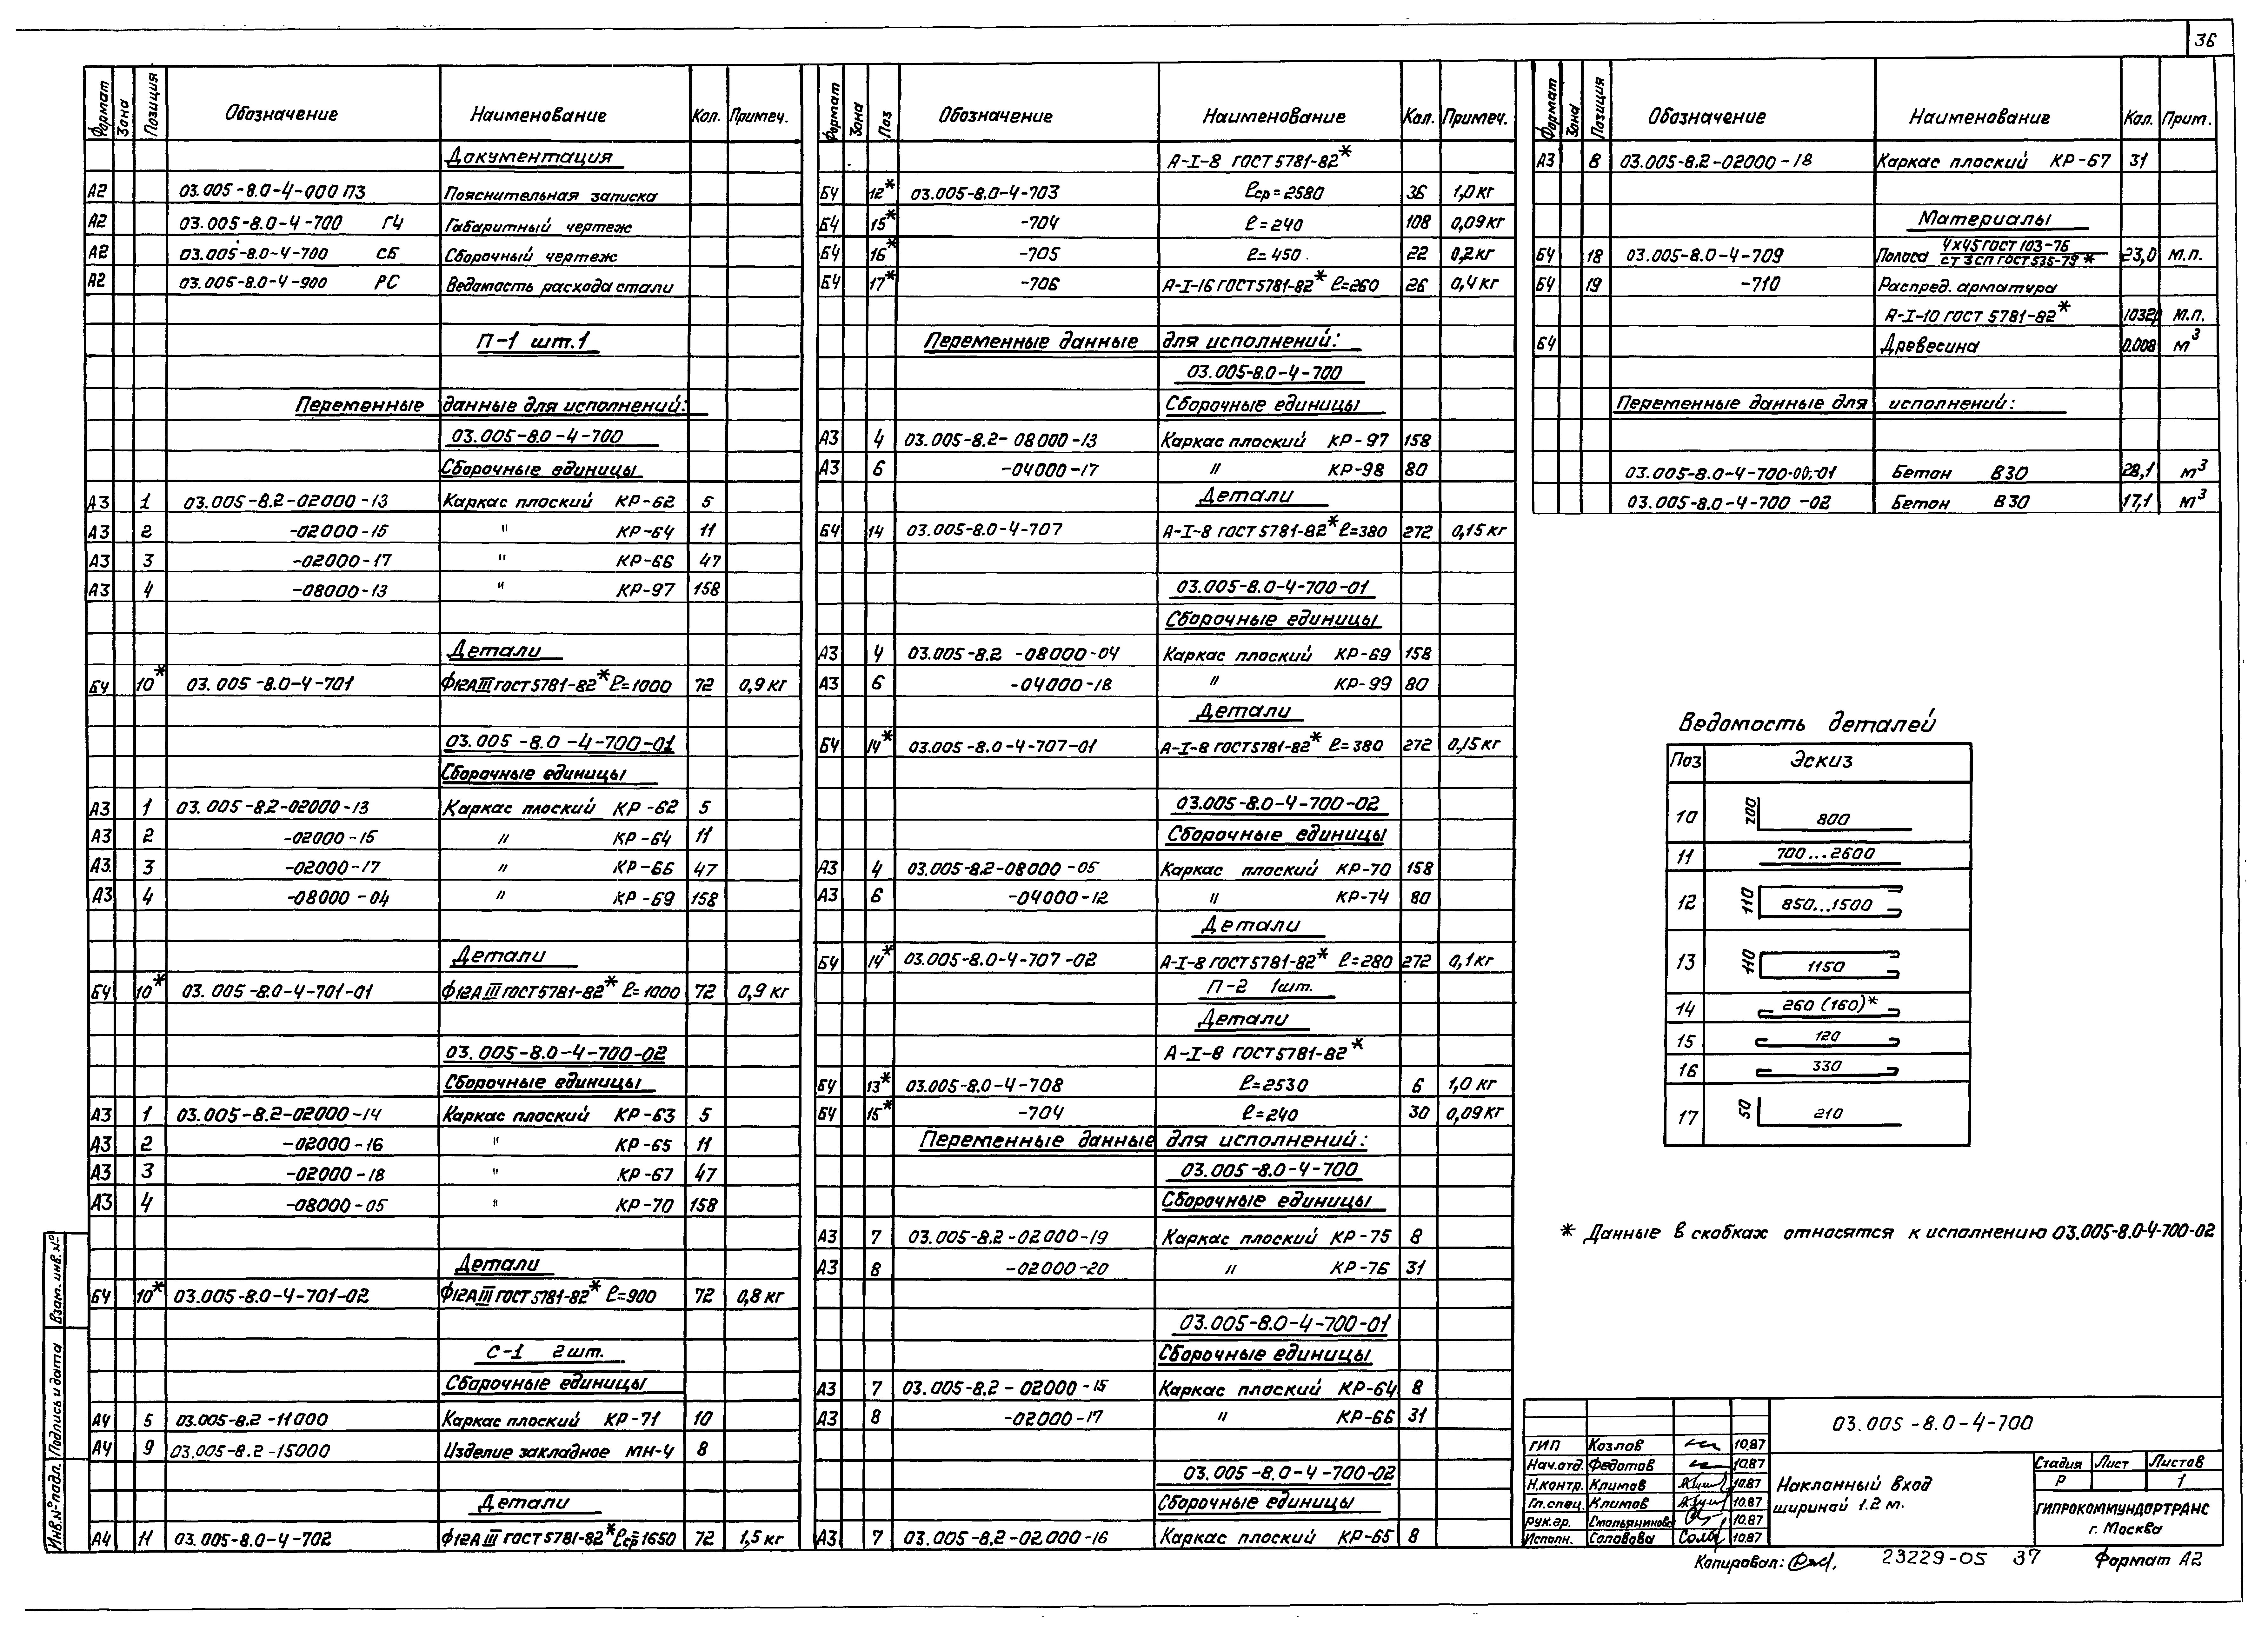 36
Формат Зона Позиция Обозначение Наименование Кол. Примеч.
Документация
А2 03.005-8.0-4-000 ПЗ Пояснительная записка
А2 03.005-8.0-4-700 ГЧ Габаритный чертеж
А2 03.005-8.0-4-700 СБ Сборочный чертеж
А2 03.005-8.0-4-900 РС Ведомость расхода стали
П-1 шт.1
Переменные данные для исполнений:
03.005-8.0-4-700
Сборочные единицы
А3 1 03.005-8.2-02000-13 Каркас плоский КР-62 5
А3 2 -02000-15 " КР-64 11
А3 3 -02000-17 " КР-66 47
А3 4 -08000-13 " КР-97 158
Детали
БЧ 10* 03.005-8.0-4-701 Ф12АIII ГОСТ 5781-82* ℓ=1000 72 0,9 кг
03.005-8.0-4-700-01
Сборочные единицы
А3 1 03.005-8.2-02000-13 Каркас плоский КР-62 5
А3 2 -02000-15 " КР-64 11
А3. 3 -02000-17 " КР-66 47
А3 4 -08000-04 " КР-69 158
Детали
БЧ 10* 03.005-8.0-4-701-01 Ф12АIII ГОСТ 5781-82* ℓ=1000 72 0,9 кг
03.005-8.0-4-700-02
Сборочные единицы
А3 1 03.005-8.2-02000-14 Каркас плоский КР-63 5
А3 2 -02000-16 " КР-65 11
А3 3 -02000-18 " КР-67 47
А3 4 -08000-05 " КР-70 158
Детали
БЧ 10* 03.005-8.0-4-701-02 Ф12АIII ГОСТ 5781-82* ℓ=900 72 0,8 кг
С-1 2 шт.
Сборочные единицы
А4 5 03.005-8.2-11000 Каркас плоский КР-71 10
А4 9 03.005-8.2-15000 Изделие закладное МН-4 8
Детали
А4 11 03.005-8.0-4-702 Ф12АIII ГОСТ 5781-82* ℓср=1650 72 1,5 кг
Формат Зона Поз Обозначение Наименование Кол. Примеч.
А-I-8 ГОСТ 5781-82*
БЧ 12* 03.005-8.0-4-703 ℓср=2580 36 1,0 кг
БЧ 15* -704 ℓ=240 108 0,09 кг
БЧ 16* -705 ℓ=450 22 0,2 кг
БЧ 17* -706 А-I-16 ГОСТ 5781-82* ℓ=260 26 0,4 кг
Переменные данные для исполнений:
03.005-8.0-4-700
Сборочные единицы
А3 4 03.005-8.2-08000-13 Каркас плоский КР-97 158
А3 6 -04000-17 " КР-98 80
Детали
БЧ 14 03.005-8.0-4-707 А-I-8 ГОСТ 5781-82* ℓ=380 272 0,15 кг
03.005-8.0-4-700-01
Сборочные единицы
А3 4 03.005-8.2-08000-04 Каркас плоский КР-69 158
А3 6 -04000-18 " КР-99 80
Детали
БЧ 14* 03.005-8.0-4-707-01 А-I-8 ГОСТ 5781-82* ℓ=380 272 0,15 кг
03.005-8.0-4-700-02
Сборочные единицы
А3 4 03.005-8.2-08000-05 Каркас плоский КР-70 158
А3 6 -04000-12 " КР-74 80
Детали
БЧ 14* 03.005-8.0-4-707-02 А-I-8 ГОСТ 5781-82* ℓ=280 272 0,1 кг
П-2 1шт.
Детали
А-I-8 ГОСТ 5781-82*
БЧ 13* 03.005-8.0-4-708 ℓ=2530 6 1,0 кг
БЧ 15* -704 ℓ=240 30 0,09 кг
Переменные данные для исполнений:
03.005-8.0-4-700
Сборочные единицы
А3 7 03.005-8.2-02000-19 Каркас плоский КР-75 8
А3 8 -02000-20 " КР-76 31
03.005-8.0-4-700-01
Сборочные единицы
А3 7 03.005-8.2-02000-15 Каркас плоский КР-64 8
А3 8 -02000-17 " КР-66 31
03.005-8.0-4-700-02
Сборочные единицы
А3 7 03.005-8.2-02.000-16 Каркас плоский КР-65 8
Формат Зона Позиция Обозначение Наименование Кол. Прим.
А3 8 03.005-8.2-02000-18 Каркас плоский КР-67 31
Материалы
БЧ 18 03.005-8.0-4-709 Полоса 4х45 ГОСТ 103-76 / Ст 3сп ГОСТ 535-79* 23,0 м.п.
БЧ 19 -710 Распред. арматура
А-I-10 ГОСТ 5781-82* 1032, м.п.
БЧ Древесина 0.008 м³
Переменные данные для исполнений:
03.005-8.0-4-700-00;-01 Бетон В30 28,1 м³
03.005-8.0-4-700-02 Бетон В30 17,1 м³
Ведомость деталей
Поз Эскиз
10 200 800
11 700...2600
12 110 850...1500
13 110 1150
14 260 (160)*
15 120
16 330
17 50 210
* Данные в скобках относятся к исполнению 03.005-8.0-4-700-02
Инв.№ подл. Подпись и дата Взам. инв. №
03.005-8.0-4-700
ГИП Козлов 10.87
Нач.отд. Федотов 10.87
Н.контр. Климов 10.87
Гл.спец. Климов 10.87
Рук.гр. Смольянинова 10.87
Исполн. Соловова 10.87
Наклонный вход
шириной 1.2 м.
Стадия Лист Листов
Р 1
ГИПРОКОММУНДОРТРАНС
г. Москва
Копировал: 23229-05 37 Формат А2